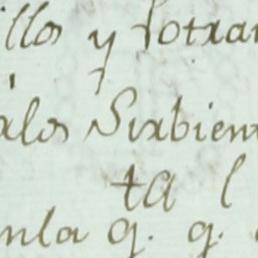 illos y Potran
alos Sirbien
ta l
nla q. q.